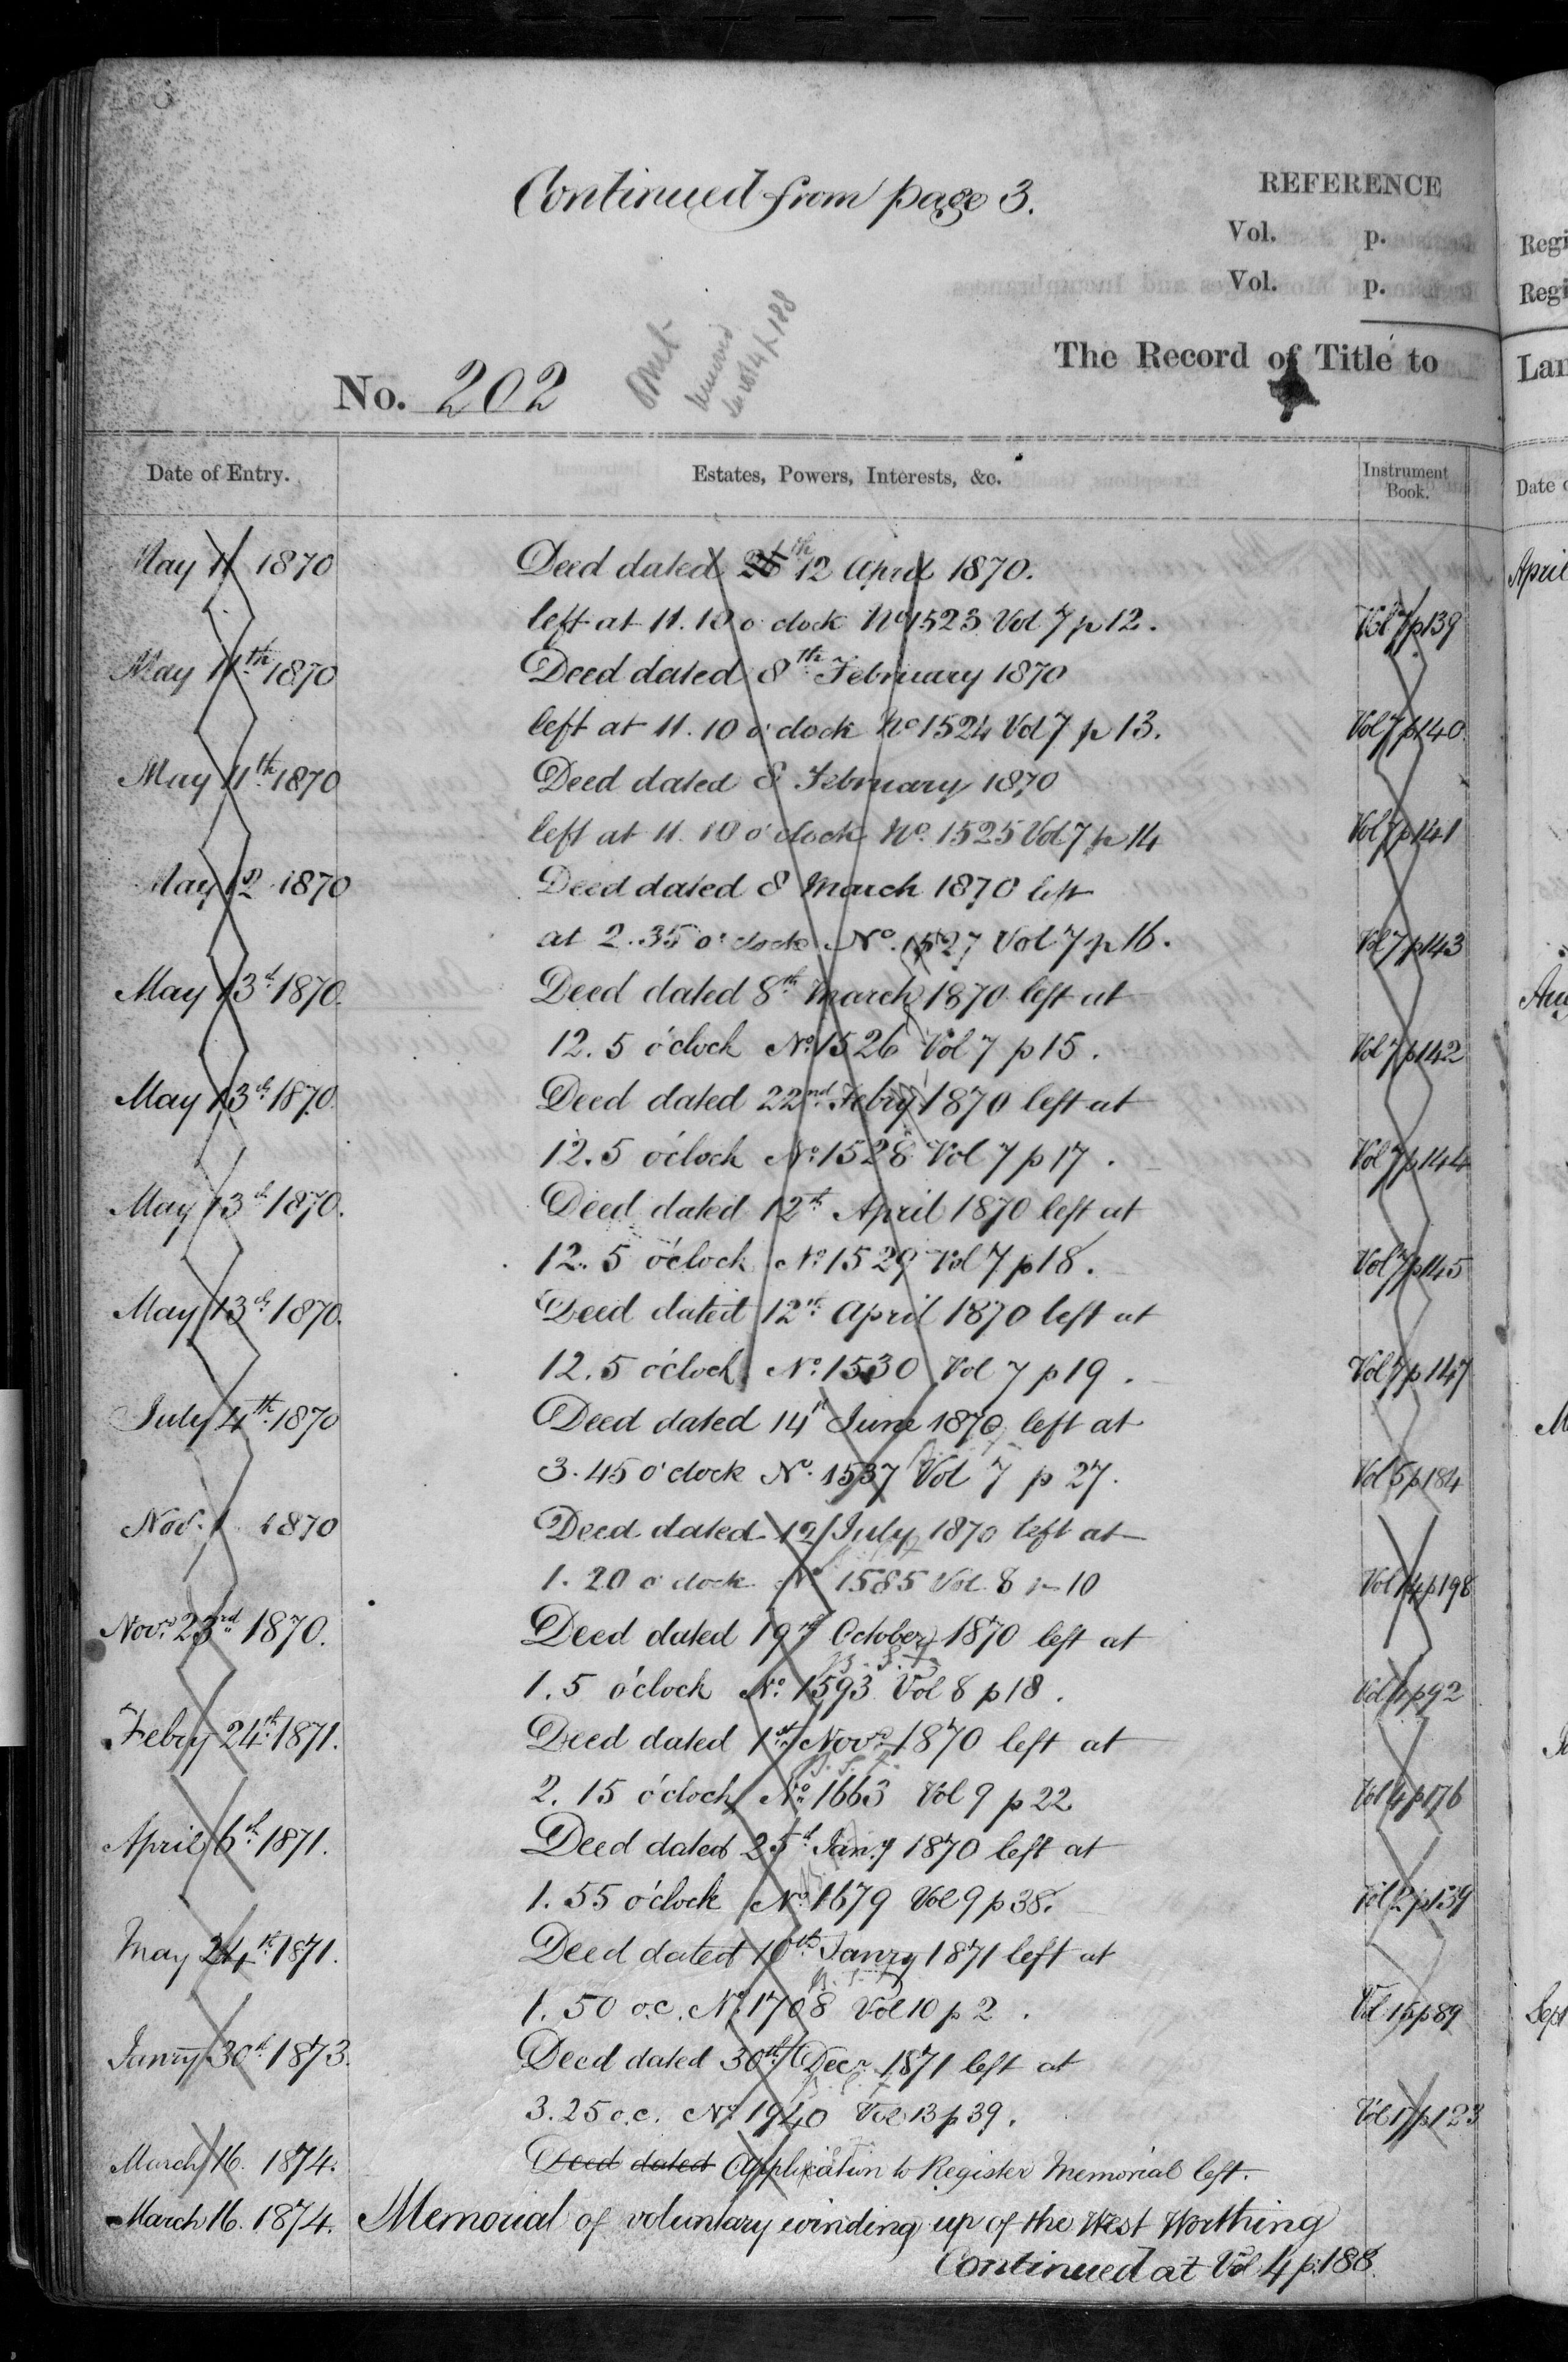 Continued from page 3.
REFERENCE
Vol. p.
Vol. p.
The Record of Title to
No. 202
Omit
Date of Entry. Estates, Powers, Interests, &c. Instrument Book.
May 11 1870 Deed dated 26th 12 April 1870.
left at 11.10 o'clock No 1523 Vol 7 p 12. Vol 7 p 139
May 11th 1870 Deed dated 8th February 1870
left at 11.10 o'clock No 1524 Vol 7 p 13. Vol 7 p 140
May 11th 1870 Deed dated 8 February 1870
left at 11.10 o'clock No. 1525 Vol 7 p 14 Vol 7 p 141
May 12 1870 Deed dated 8 March 1870 left
at 2.35 o'clock No. 1527 Vol 7 p 16. Vol 7 p 143
May 13th 1870. Deed dated 8th March 1870 left at
12.5 o'clock No. 1526 Vol 7 p 15. Vol 7 p 142
May 13th 1870. Deed dated 22nd Febry 1870 left at
12.5 o'clock No. 1528 Vol 7 p 17. Vol 7 p 144
May 13th 1870. Deed dated 12th April 1870 left at
12.5 o'clock No. 1529 Vol 7 p 18. Vol 7 p 145
May 13th 1870. Deed dated 12th April 1870 left at
12.5 o'clock No. 1530 Vol 7 p 19. Vol 7 p 147
July 4th 1870 Deed dated 14th June 1870 left at
3.45 o'clock No. 1537 Vol 7 p 27. Vol 5 p 184
Nov. 1 1870 Deed dated 12 July 1870 left at
1.20 o'clock No 1585 Vol 8 p 10 Vol 14 p 198
Novr. 23rd 1870. Deed dated 19th October 1870 left at
1.5 o'clock No. 1593 Vol 8 p 18. Vol 1 p 92
Febry 24th 1871. Deed dated 1st Novr. 1870 left at
2.15 o'clock No. 1663 Vol 9 p 22 Vol 4 p 176
April 6th 1871. Deed dated 25th Jany 1870 left at
1.55 o'clock No. 1679 Vol 9 p 38. Vol 2 p 139
May 24th 1871. Deed dated 10th Janry 1871 left at
1.50 o.c. No. 1708 Vol 10 p 2. Vol 15 p 89
Janry 30th 1873. Deed dated 30th Decr. 1871 left at
3.25 o.c. No 1940 Vol 13 p 39. Vol 17 p 123
March 16. 1874. Deed dated Application to Register Memorial left.
March 16. 1874. Memorial of voluntary winding up of the West Worthing
Continued at Vol 4 p. 188.
Regi
Regi
Lan
Date o
April
Aug
Sept